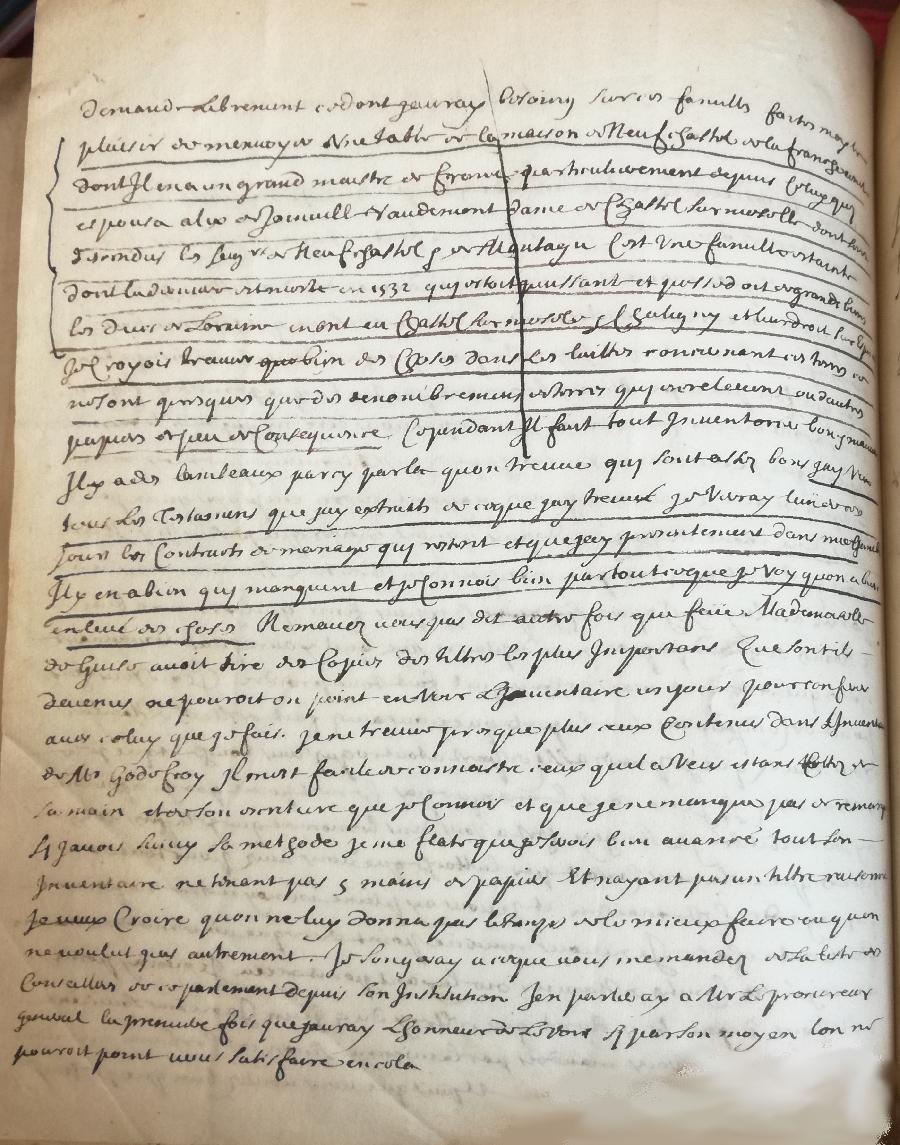 demande librement ce dont jauray besoing sur ces familles faites moy le
plaisir de menvoyer une table de la maison de Neufchastel de la franche
dont Il en a un grand maistre de france particulierement depuis celuy qui
espousa alix de Joinville Vaudemont dame de Chastel sur moselle dont sont
descendus les seigrs de Neufchastel et de Montagu Cest une famille estainte
dont la derniere est morte en 1532 qui estoit puissante et possedoit de grands biens
les Ducs de Loraine en ont eu Chastel sur moselle et Chaligny et leur droit sur
Je Croyois treuver bien des Choses dans les laittes concernant ces terres ce
ne sont quasques que des denombremens de terres qui en relevent ou dautres
papiers de peu de Consequence Cependant Il faut tout Inventorier bon et mauvais
Il y a des lambeaux par cy par la quon treuve qui sont assez bons Jay veu
tous les Testamens que jay extraits de ce que jay treuvé Je verray luire ces
jours les Contracts de mariage qui restent et que jay presentement dans
Il y en a bien qui manquent et je Connois bien par tout ce que je voy quon a bien
enlevé des choses Ne mavez vous pas dit autre fois que feüe Mademoiselle
de Guise avoit tire des Copies des tiltres les plus Importans Que sont ils
devenus ne pouroit on point en voir LInventaire un jour pour conferer
avec celuy que je fais. je ne treuve presque plus ceux Contenus dans lInventaire
de Mr Godefroy Il mest facile de connoistre ceux quil a veus estans Cottez de
sa main et de son escriture que je Connois et que je ne manque pas de remarquer
Sy Javois suivy sa methode je me flate que je serois bien avancé tout son
Inventaire ne tenant pas 5 mains de papier Et nayant pas un tiltre raisonné
Je veux Croire quon ne luy donna pas le temps de le mieux faire ou quon
ne voulut pas autrement. Je songeray a ce que vous me mandez de la liste des
Conseillers de ce parlement depuis son Institution Jen parleray a Mr Le procureur
general la premiere fois que jauray Lhonneur de Le voir sy par son moyen lon ne
pouroit point vous satisfaire en cela